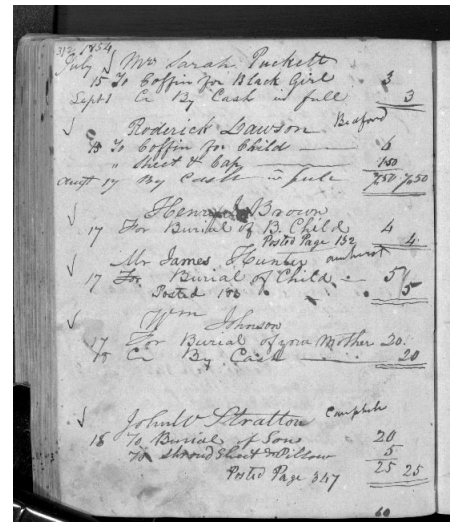 312 1854
July Mrs Sarah Puckett
15 To Coffin for Black Girl 3
Sept 1 Cr By Cash in full 3
Roderick Dawson Bedford
15 To Coffin for Child 6
" Sheet & Cap 1.50
Augt 17 By Cash in full 7.50 7.50
Henry Brown
17 For Burial of B. Child 4
Posted Page 132 4
Mr James Hunter amherst
17 For Burial of Child 5
Posted 5
Wm Johnson
17 For Burial of your Mother 20.
Cr By Cash 20
John W Stratton Campbell
18 To Burial of Son 20
To Shroud Sheet & Pillow 5
Posted Page 347 25 25
60